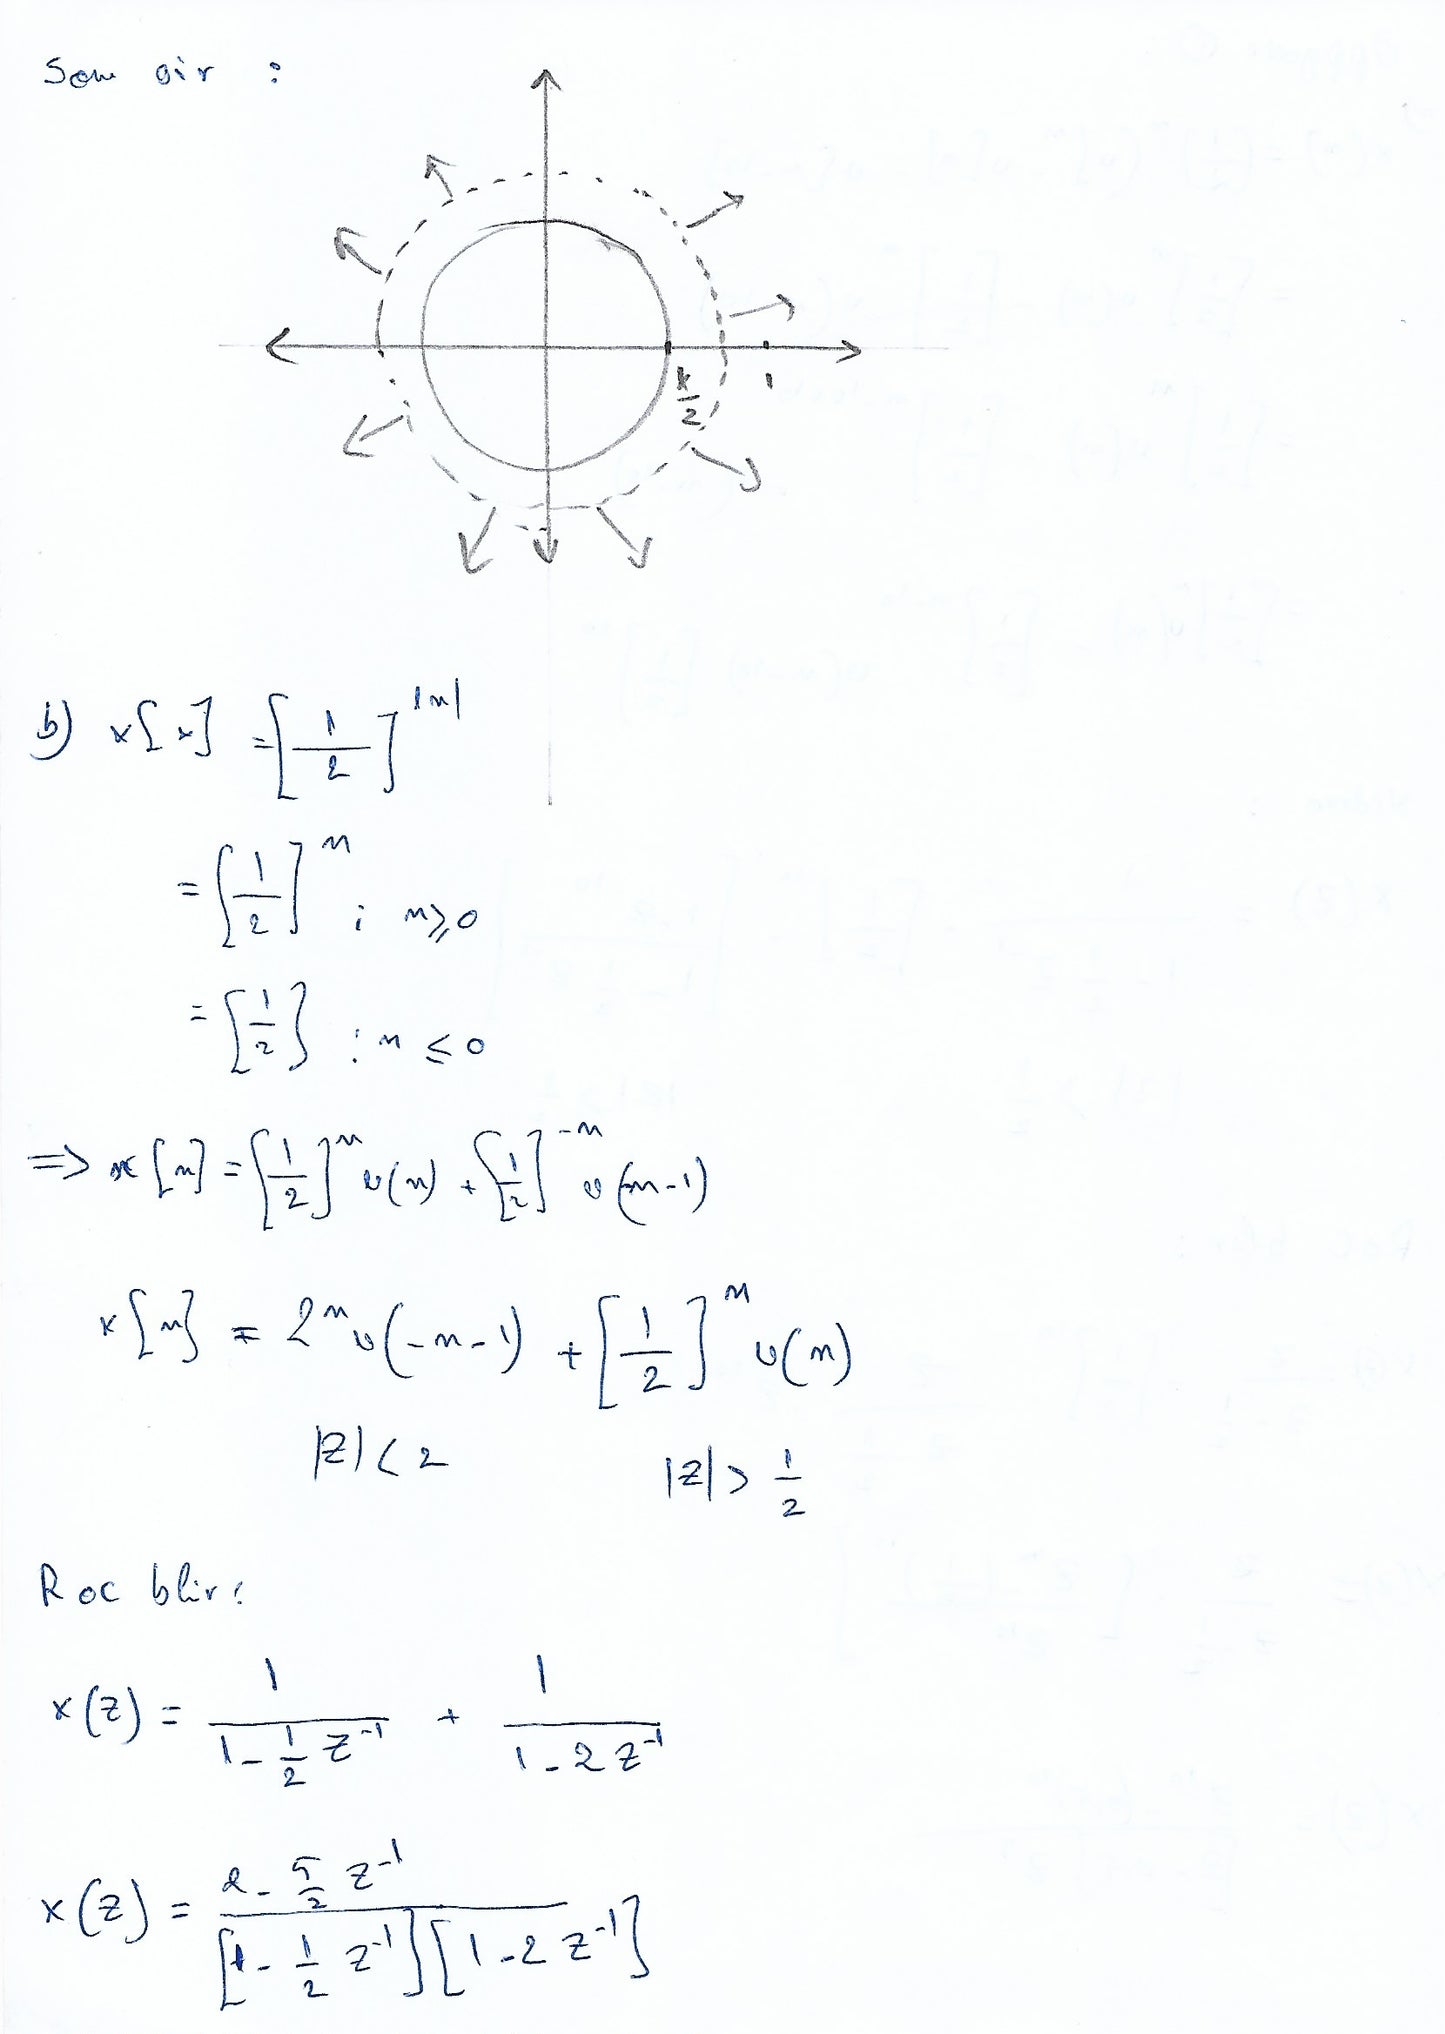 Som gir :
k/2
1
b) x[x] = [1/2]^|n|
= [1/2]^n ; n ≥ 0
= [1/2] : n ≤ 0
=> x[n] = [1/2]^n u(n) + [1/2]^-n u(-n-1)
x[n] = 2^n u(-n-1) + [1/2]^n u(n)
|z| < 2 |z| > 1/2
Roc blir:
x(z) = 1/(1 - 1/2 z^-1) + 1/(1 - 2z^-1)
x(z) = (2 - 5/2 z^-1)/([1 - 1/2 z^-1][1 - 2z^-1])